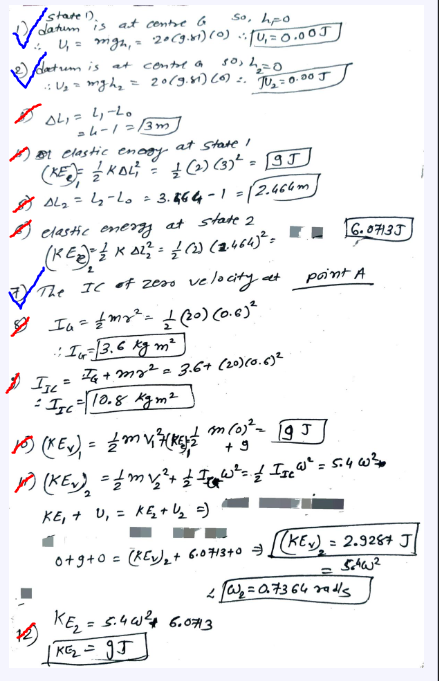 State 1).
1) datum is at centre G so, h=0
∴ U₁ = mgh₁ = 20(9.81)(0) ∴ U₁ = 0.00 J
2) datum is at centre G so, h₂=0
∴ U₂ = mgh₂ = 20(9.81)(0) ∴ U₂ = 0.00 J
3) ΔL₁ = L₁-L₀
= 4-1 = 3m
4) elastic energy at state 1
(KEe)₁ = 1/2 KΔL₁² = 1/2 (2) (3)² = 9 J
5) ΔL₂ = L₂-L₀ = 3.464 - 1 = 2.464m
6) elastic energy at state 2
(KEe)₂ = 1/2 K ΔL₂² = 1/2 (2) (2.464)² = 6.0713J
7) The IC of zero velocity at point A
8) IG = 1/2 mr² = 1/2 (20) (0.6)²
∴ IG = 3.6 kg m²
9) IIC = IG + mr² = 3.6 + (20)(0.6)²
: IIC = 10.8 kg m²
10) (KEv)₁ = 1/2 m V₁² + (KEe)₁ 1/2 m (0)² = 9 J
+ 9
11) (KEv)₂ = 1/2 m v₂² + 1/2 IG ω² = 1/2 IIC ω² = 5.4 ω²
KE₁ + U₁ = KE₂ + U₂ =)
0+9+0 = (KEv)₂ + 6.0713+0 ⇒ (KEv)₂ = 2.9287 J
= 5.4ω²
∴ ω₂ = 0.7364 rad/s
12) KE₂ = 5.4ω² + 6.0713
KE₂ = 9J